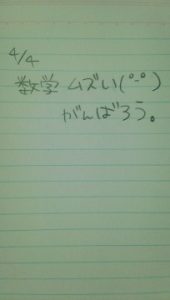 4/4
数学 ムズい(°-°)
がんばろう。